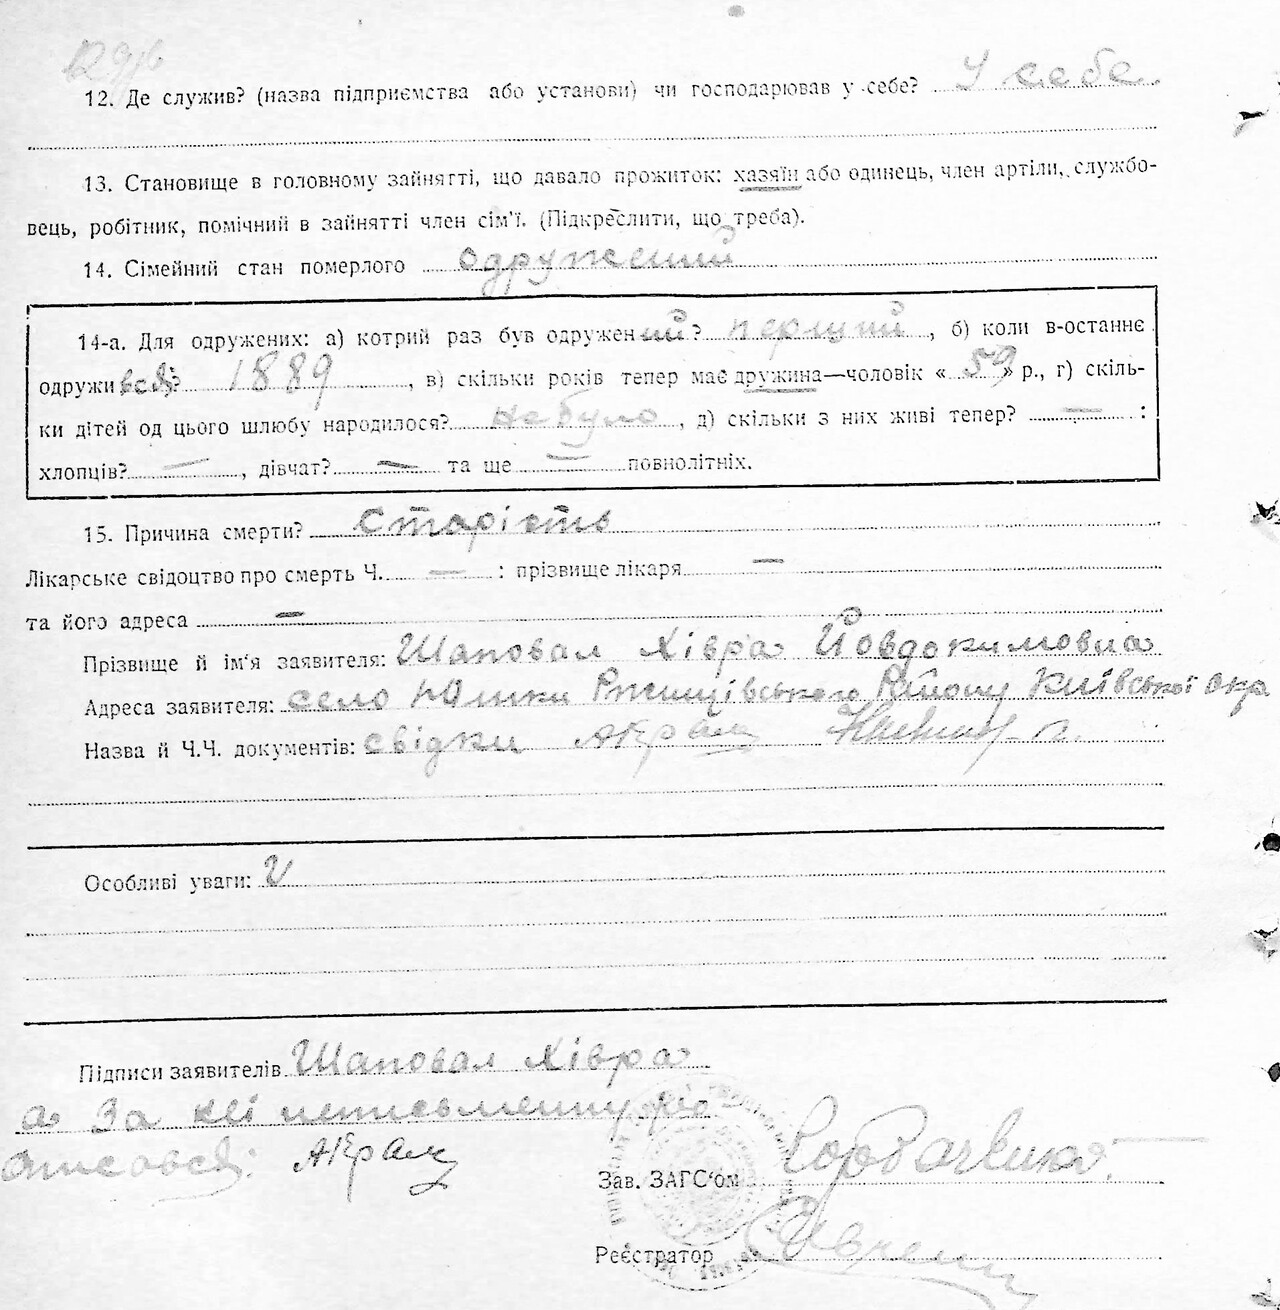 12. Де служив? (назва підприємства або установи) чи господарював у себе? У себе
13. Становище в головному зайнятті, що давало прожиток: хазяїн або одинець, член артіли, службо-
вець, робітник, помічний в зайнятті член сім'ї. (Підкреслити, що треба).
14. Сімейний стан померлого одружений
14-а. Для одружених: а) котрий раз був одружений? перший, б) коли в-останнє
одруживсь? 1889, в) скільки років тепер має дружина—чоловік « 59 » р., г) скіль-
ки дітей од цього шлюбу народилося? не було, д) скільки з них живі тепер? — :
хлопців? —, дівчат? — та ще — повнолітніх.
15. Причина смерти? Старість
Лікарське свідоцтво про смерть Ч. — : прізвище лікаря —
та його адреса —
Прізвище й ім'я заявителя: Шаповал Хівра Йовдокимовна
Адреса заявителя: село Юшки Ржищівського Району Київської окр
Назва й Ч.Ч. документів: свідки
Особливі уваги:
Підписи заявителів Шаповал Хівра
а за неї неписьменну
Зав. ЗАГС'ом Горбаченко
Реєстратор